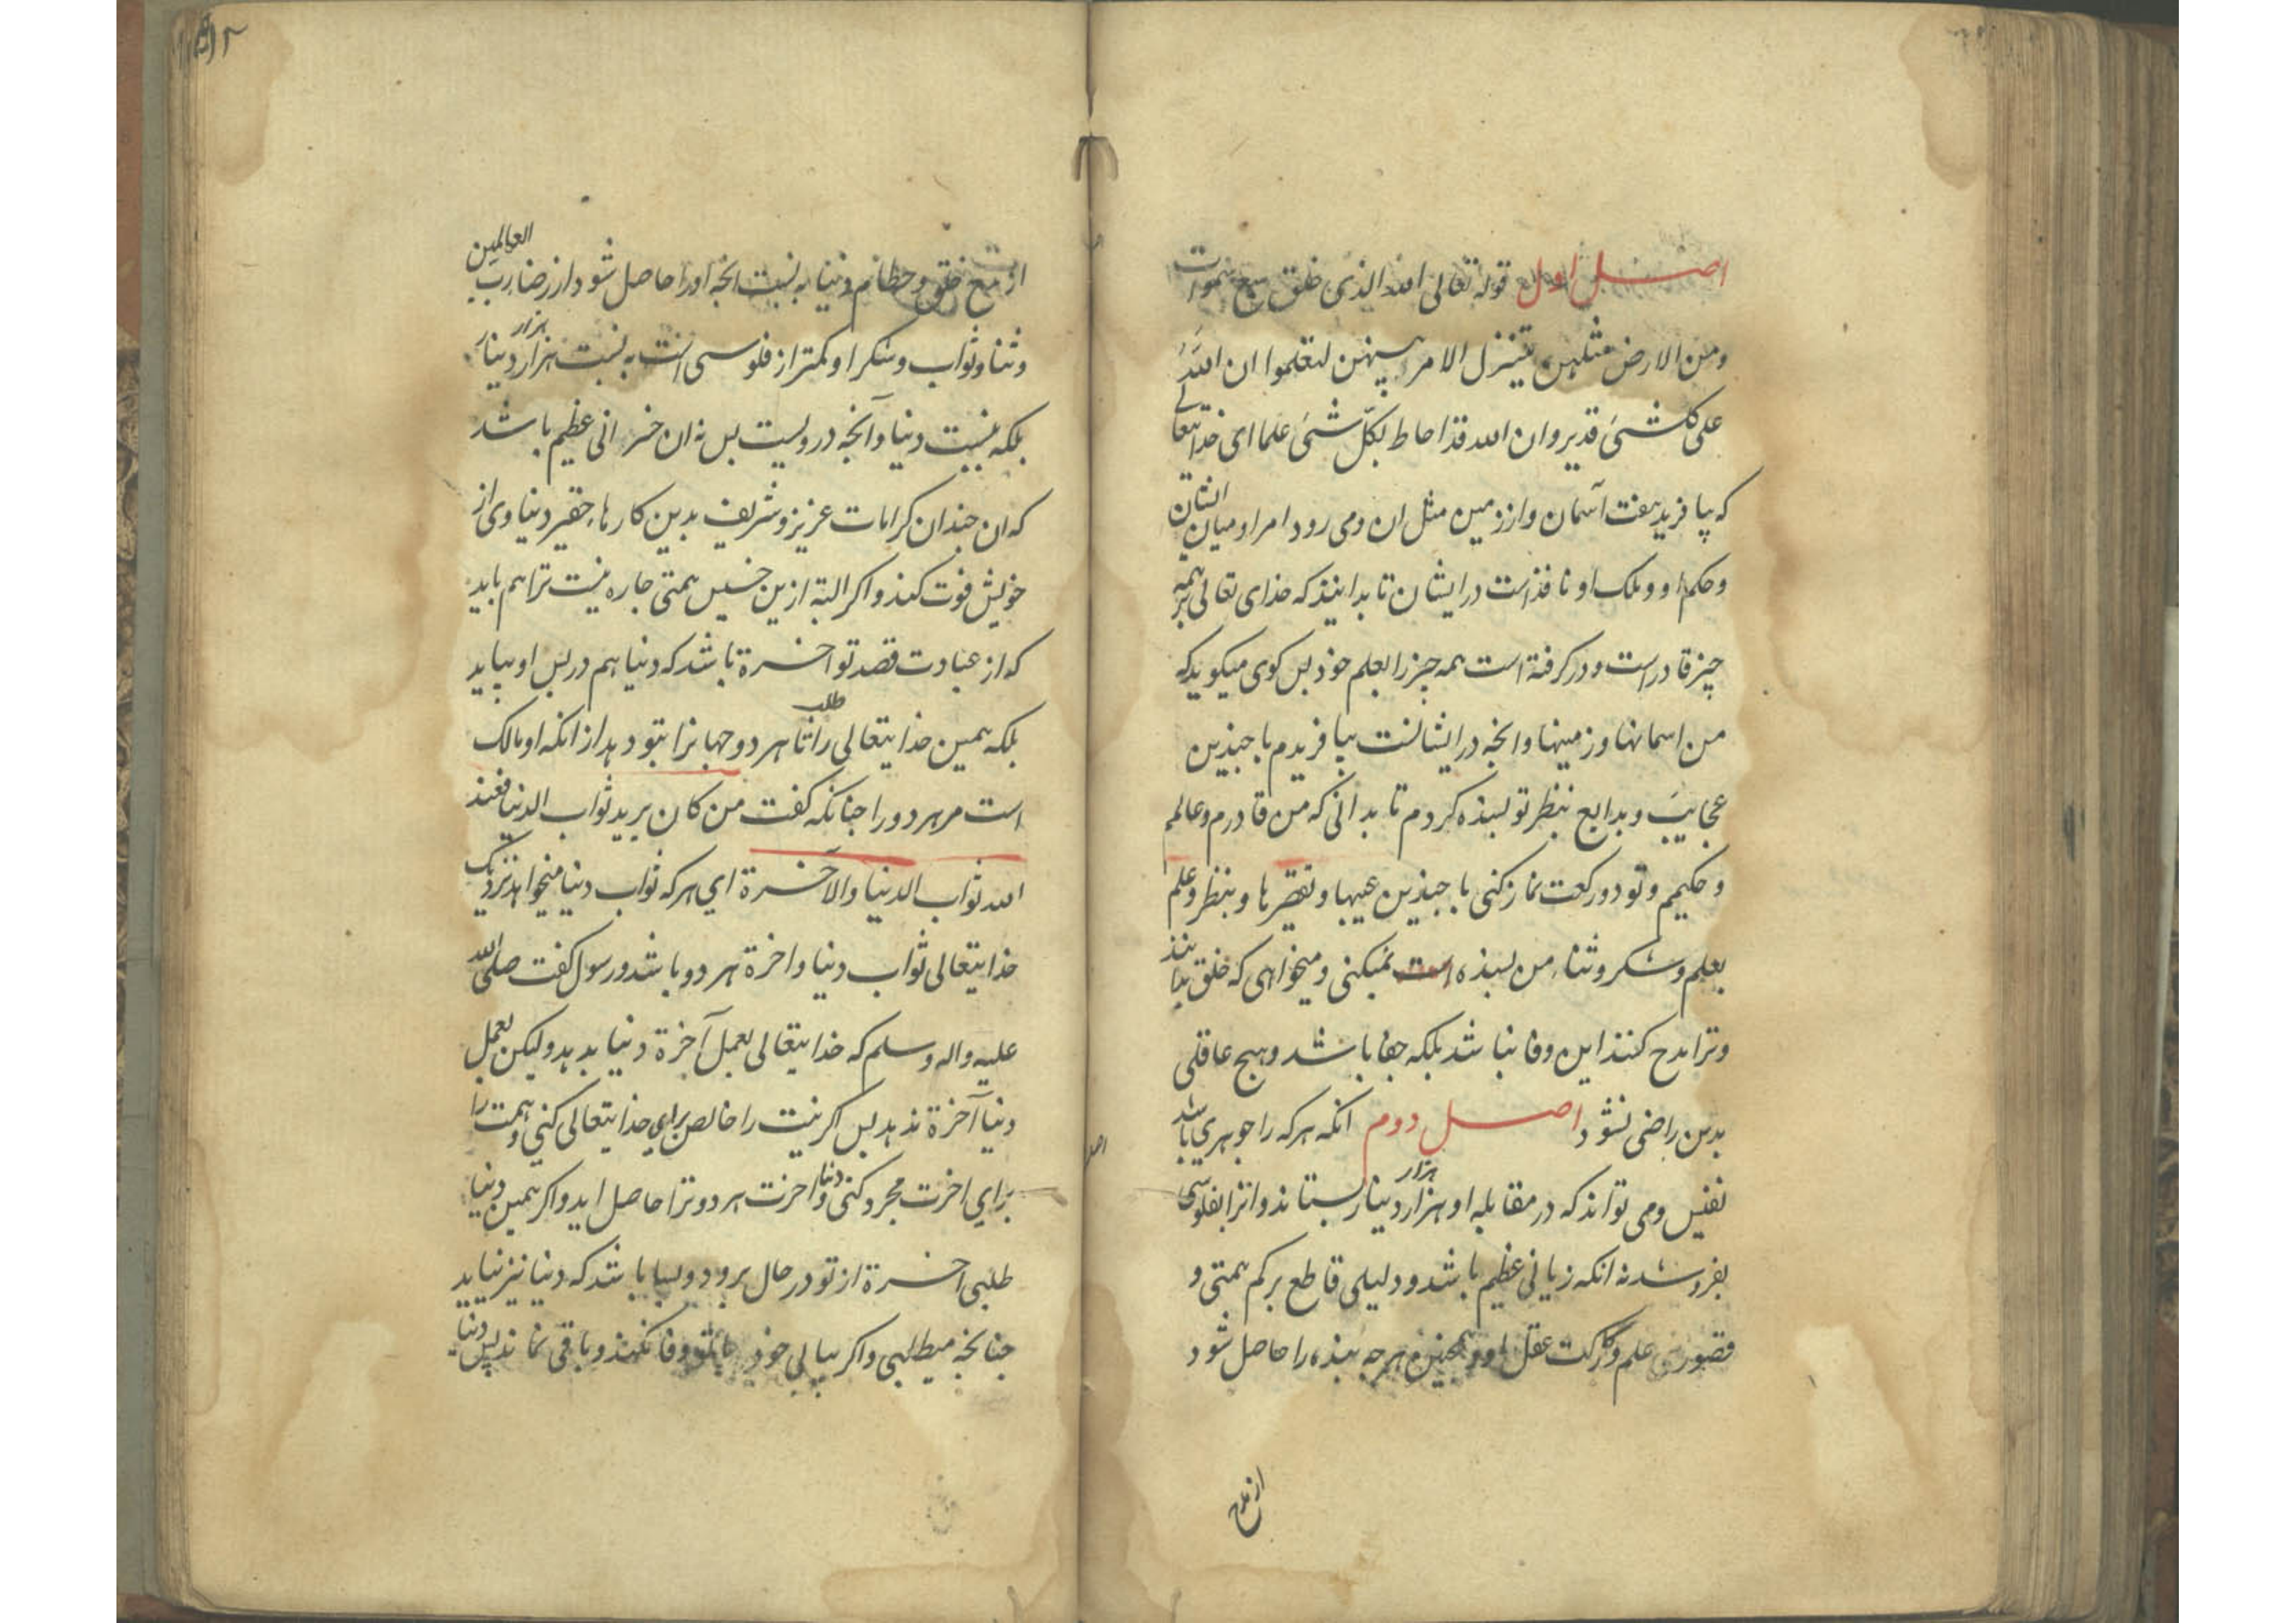 اصل اول قوله تعالی الله الذی خلق سبع سموات
ومن الارض مثلهن یتنزل الامر بینهن لتعلموا ان الله
علی کل شیٔ قدیر وان الله قد احاط بکل شیٔ علما ای خدایتعالی
که بیافرید هفت آسمان واز زمین مثل ان ومی رود امر او میان ایشان
وحکم او وملک او نافذ است در ایشان تا بدانیذ که خدای تعالی بر همه
چیز قادر است ودر کرفته است همه چیز را بعلم خود پس کوی میکوید که
من اسمانها وزمینها وانچه در ایشانست بیافریدم با چندین
عجایب وبدایع بنظر تو بسنده کردم تا بدانی که من قادرم وعالم
وحکیم وتو دو رکعت نماز کنی با چندین عیبها وتقصیرها وبنظر وعلم
بعلم وشکر وثناء من بسنده نمیکنی ومیخواهی که خلق بدانند
وترا مدح کنند این وفا نباشد بلکه جفا باشد وهیچ عاقلی
بدین راضی نشود اصل دوم انکه هرکه را جوهری باشد
نفیس ومی تواند که در مقابله او هزار هزار دینار بستاند وانرا بفلوسی
بفروشد نه انکه زیانی عظیم باشد ودلیلی قاطع بر کم همتی و
قصور علم ورکاکت عقل او وهمچنین هرچه بنده را حاصل شود
از مدح
از مدح خلق وحطام دنیا به نسبت انچه اورا حاصل شود از رضا رب العالمین
وثنا وثواب وشکر او کمتر از فلوسی است به نسبت هزار هزار دینار
بلکه بنسبت دنیا وآنچه دروست پس نه ان خسرانی عظیم باشد
که ان چندان کرامات عزیز وشریف بدین کارهاء حقیر دنیاوی از
خویش فوت کند واکر البته ازین خسیس همتی چاره نیست ترا هم باید
که از عبادت قصد تو اخرة باشد که دنیا هم در پس او بیاید
بلکه همین خدایتعالی را طلب تا هر دو جهانرا بتو دهد از انکه او مالک
است مر هر دو را چنانکه کفت من کان یرید ثواب الدنیا فعند
الله ثواب الدنیا والآخرة ای هرکه ثواب دنیا میخواهد نزدیک
خدایتعالی ثواب دنیا واخرة هر دو باشد ورسول کفت صلی الله
علیه واله وسلم که خدایتعالی بعمل آخرة دنیا بدهد ولیکن بعمل
دنیا آخرة ندهد پس اکر نیت را خالص برای خدایتعالی کنی وهمت را
برای اخرت مجرد کنی دنیا واخرت هر دو ترا حاصل اید واکر همین دنیا
طلبی اخرة از تو در حال برود وبسا باشد که دنیا نیز نیاید
چنانچه میطلبی واکر بیابی خود وفا نکند وباقی نماند پس دنیا